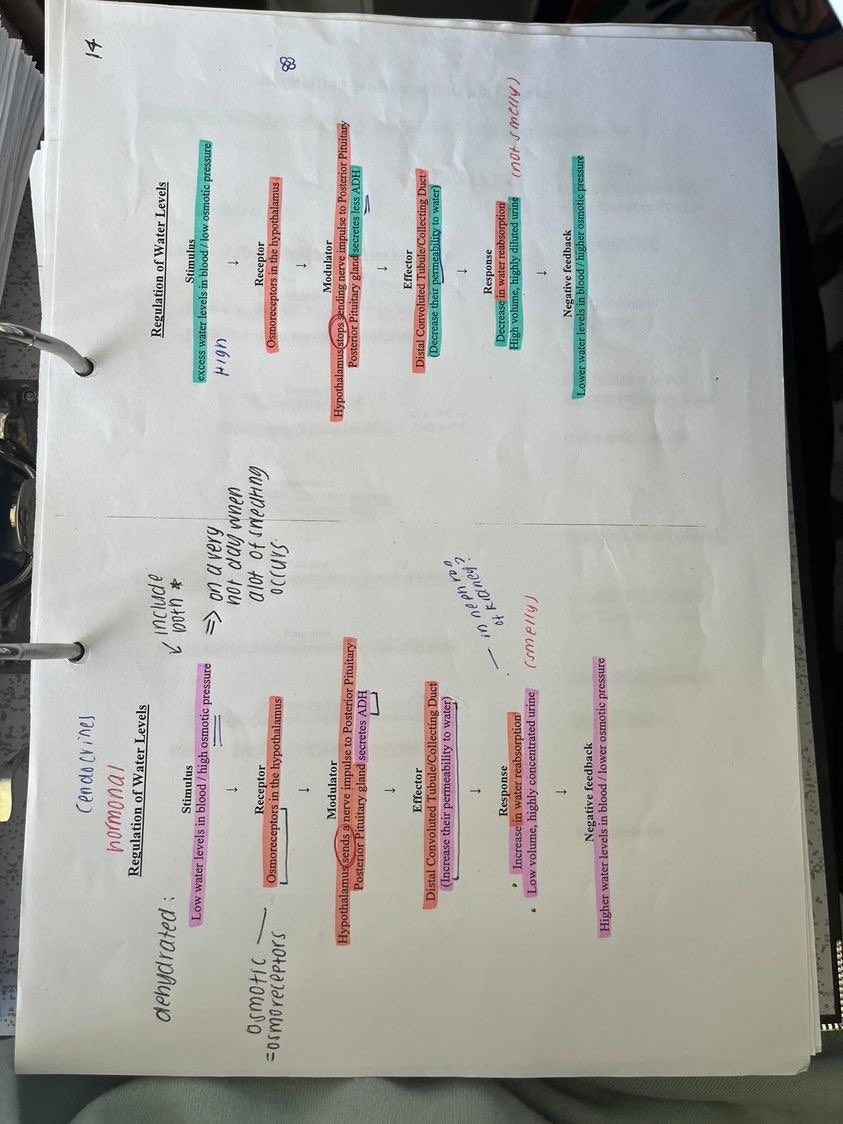 14
(endocrine)
hormonal
Regulation of Water Levels
dehydrated:
Stimulus
Low water levels in blood / high osmotic pressure
↙ include
both *
⇒ on a very
hot day when
alot of sweating
occurs.
↓
Receptor
Osmoreceptors in the hypothalamus
osmotic
=osmoreceptors
↓
Modulator
Hypothalamus sends a nerve impulse to Posterior Pituitary
Posterior Pituitary gland secretes ADH
↓
Effector
Distal Convoluted Tubule/Collecting Duct
(Increase their permeability to water)
— in nephron
of kidney?
↓
Response
Increase in water reabsorption
Low volume, highly concentrated urine
(smelly)
↓
Negative feedback
Higher water levels in blood / lower osmotic pressure
Regulation of Water Levels
Stimulus
excess water levels in blood / low osmotic pressure
HIgh
↓
Receptor
Osmoreceptors in the hypothalamus
↓
Modulator
Hypothalamus stops sending nerve impulse to Posterior Pituitary
Posterior Pituitary gland secretes less ADH
↓
Effector
Distal Convoluted Tubule/Collecting Duct
(Decrease their permeability to water)
↓
Response
Decrease in water reabsorption
High volume, highly diluted urine
(not smelly)
↓
Negative feedback
Lower water levels in blood / higher osmotic pressure